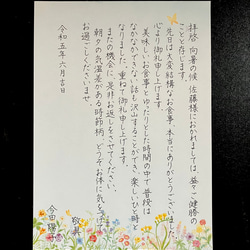 拝啓 向暑の候 佐藤様におかれましては、益々ご健勝の
ことと存じます。
先日は大変結構なお食事を本当にありがとうございました。
心より御礼申し上げます。
美味しいお食事とゆったりとした時間の中で普段は
なかなかできない話も沢山することができ、楽しいひと時と
なりました。重ねて御礼申し上げます。
またの機会に、是非お返しをさせてください。
朝夕の気温差がある時節柄、どうぞお体に気をつけて
お過ごしくださいませ。
敬具
令和五年六月吉日
今田